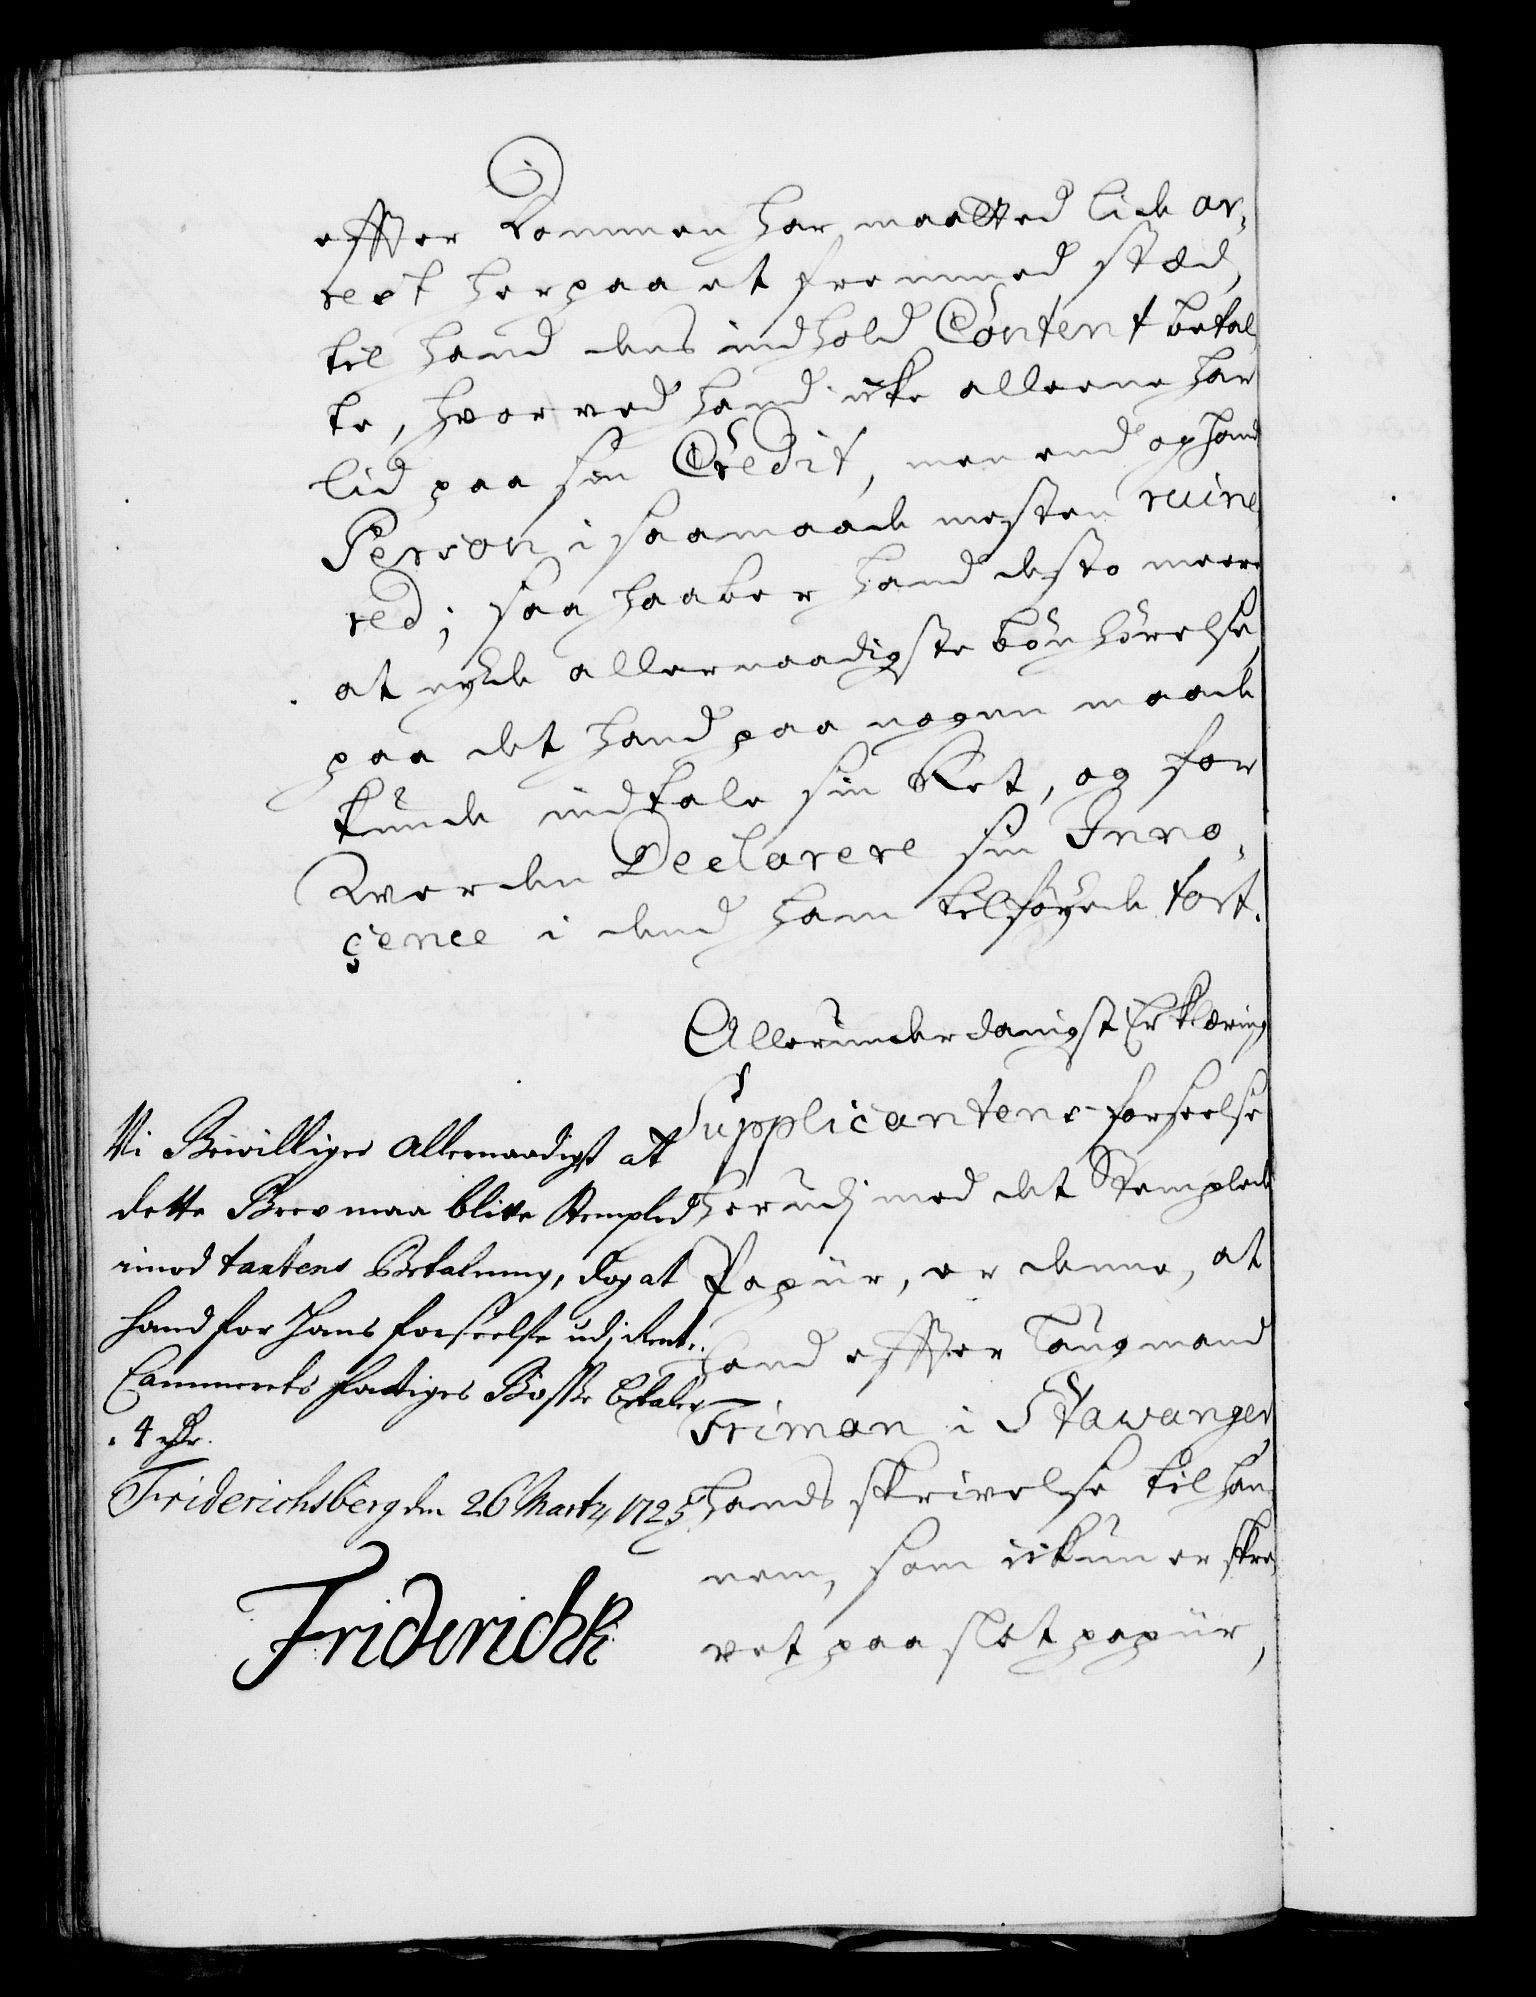 effter Dommen har maatted lide ar„
rest her paa et fremmed stæd,
til hand des indhold Content betal
te, hvorved hand icke alleene har
lid paa sin Credit, men end og hans
Person i saamaade mesten ruine
red; saa haaber hand desto meere
at nyde allernaadigste bönhörelse,
paa det hand paa nogen maade
kunde indtale sin Ret, og for
Declarere sin Inno„
cence i dend ham tilföyede tort.
Allerunderdanigst Erklæring
Supplicantens forseelse
herudj med det Stemplede
Papiir, er denne, at
hand effter Laugmand
Friman i Stawanger,
hands skrivelse til han„
nem, som ickun er skre„
vet paa slet papiir,
Vi Bewilliger Allernaadigst att
dette Brev maa blive stempled
imod taxtens Betaling, dog at
hand for hans forseelse udj Rente„
Cammerets fattiges Bösse betaler
4 rdr.
Friderichsberg den 26 Martij 1725
Friderich R